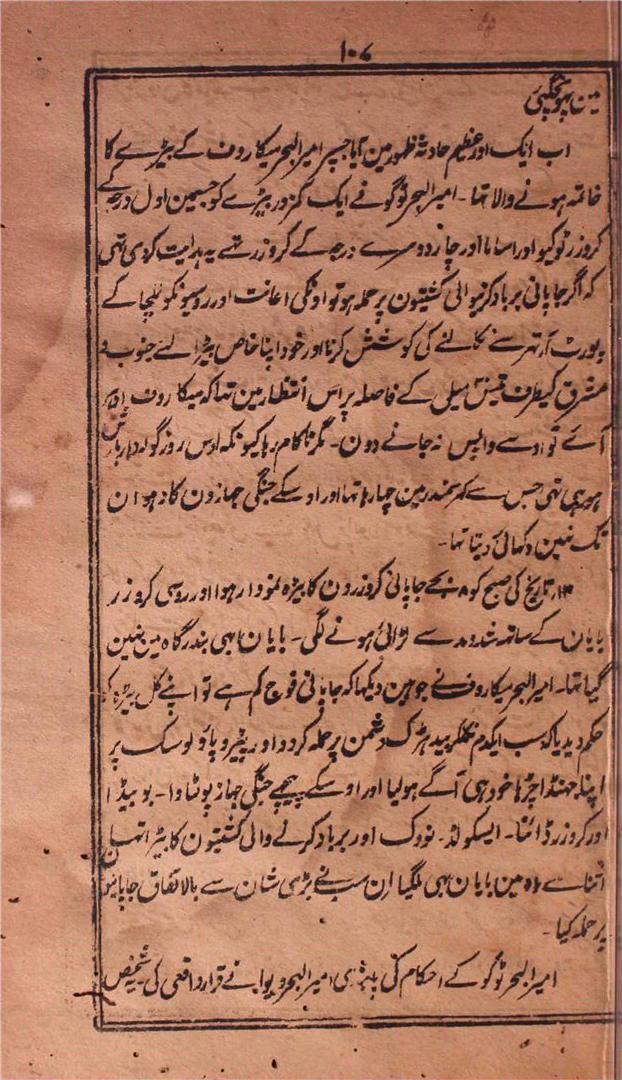 ۱۰۷
مین پہونچگئی
اب ایک اور عظیم حادثہ ظہور مین آیا جسپر امیرالبحر میکاروف کے بیڑے کا
خاتمہ ہونے والا تھا۔ امیرالبحر ٹوگو نے ایک کمزور بیڑے کو جسمین اول درجہ کے
کروزر ٹوکیو اور اساما اور چار دوسرے درجہ کے کروزر تھے یہ ہدایت کردی تھی
کہ اگر جاپانی برباد کرنیوالی کشتیون پر حملہ ہو تو اونکی اعانت اور روسیونکو للچا کے
پورٹ آرتھر سے نکالنے کی کوشش کرنا اور خود اپنا خاص بیڑا لئے جنوب و
مشرق کیطرف تیس میل کے فاصلہ پر اس انتظار مین تھا کہ میکاروف ادہر
آئے تو اوسے واپس نہ جانے دون۔ مگر ناکام رہا کیونکہ اوس روز گولہ دار بارش
ہو رہی تھی جس سے کہر سمندر مین چھا رہا تھا اور اوسکے جنگی جہازون کا دہوان
تک نہین دکھائی دیتا تھا۔
۱۳۔ تاریخ کی صبح کو ۸ بجے جاپانی کروزرون کا بیڑہ نمودار ہوا اور روسی کروزر
بایان کے ساتھ شدومد سے لڑائی ہونے لگی۔ بایان ابھی بندرگاہ مین نہین
گیا تھا۔ امیرالبحر میکاروف نے جوہین دیکھا کہ جاپانی فوج کم ہے تو اپنے کل بیڑہ کو
حکم دیدیا کہ سب ایکدم نکلکر بیدہڑک دشمن پر حملہ کردو اور پیٹروپاولوسک پر
اپنا جھنڈا چڑہا خود ہی آگے ہولیا اور اوسکے پیچھے جنگی جہاز پولٹاوا۔ پوبیڈا
اور کروزر ڈائنا۔ ایسکولڈ۔ نووک اور برباد کرنے والی کشتیون کا بیڑا تھا۔
اثنائے راہ مین بایان بھی ملگیا ان سب نے بڑی شان سے بالاتفاق جاپانیون
پر حملہ کیا۔
امیرالبحر ٹوگو کے احکام کی پابندی امیرالبحر ویوا نے قرار واقعی کی